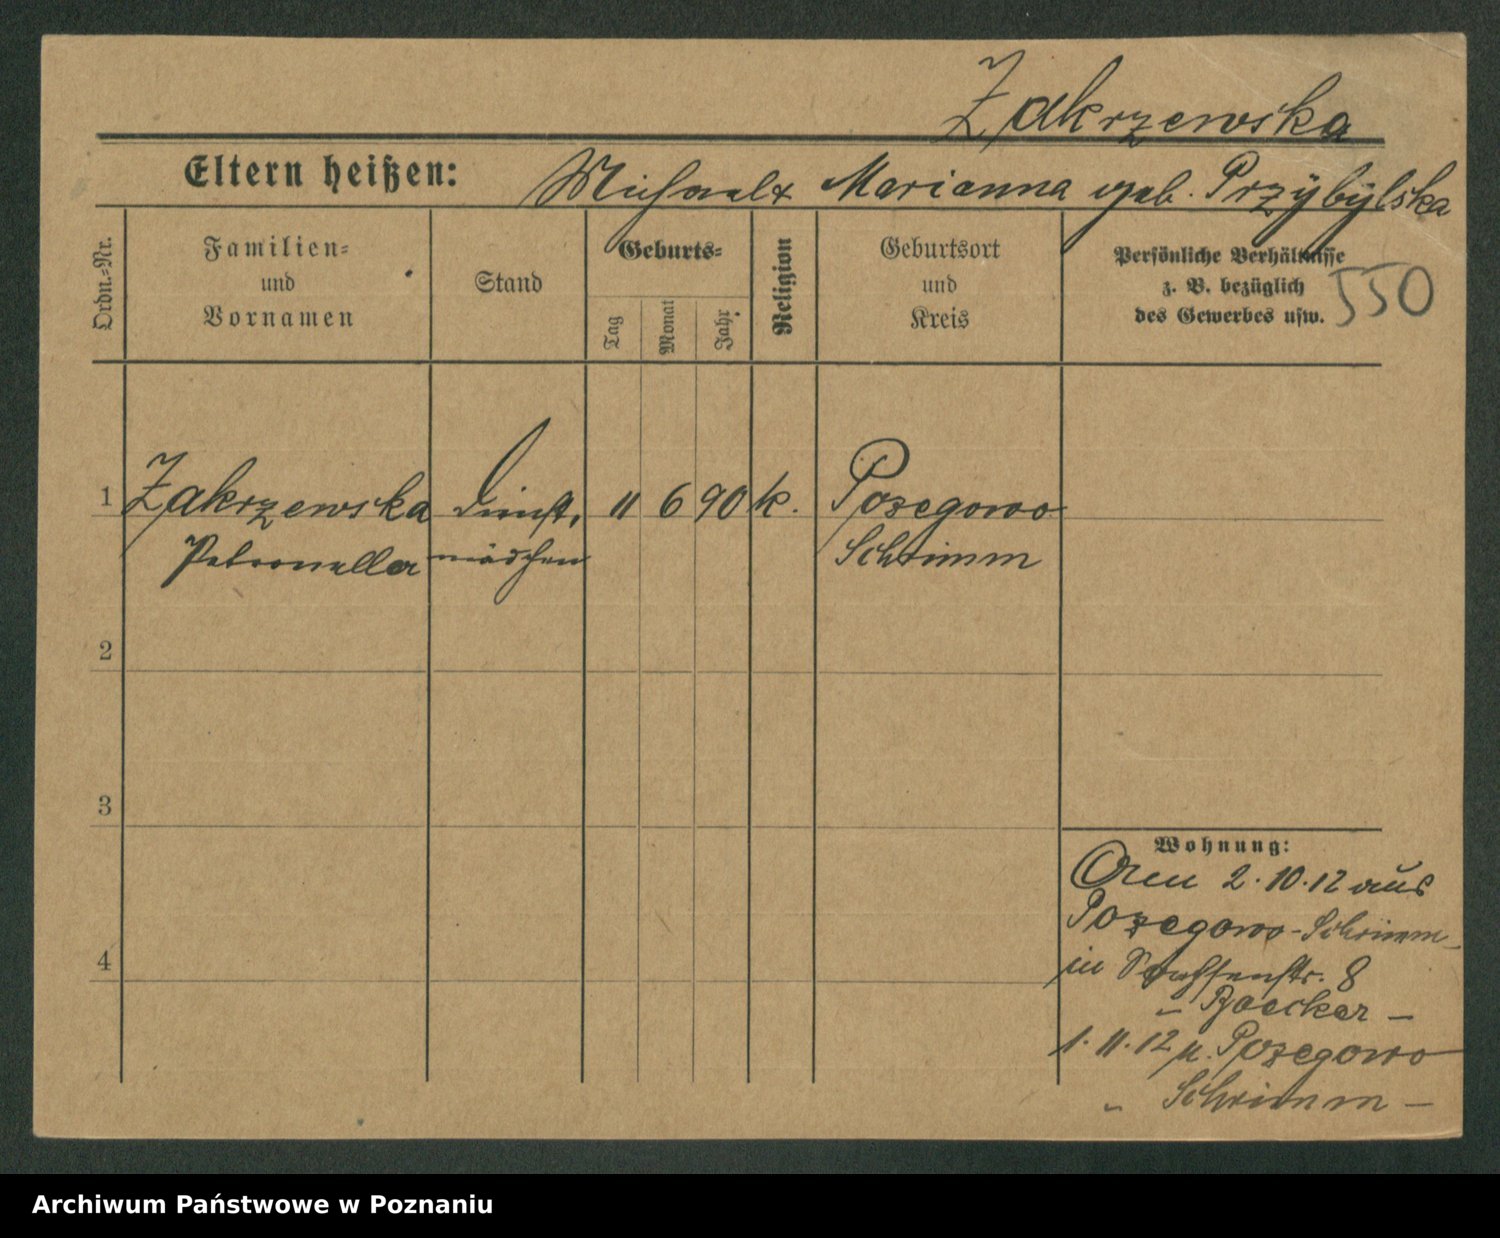 Zakrzewska
Eltern heißen: Michael & Marianna geb. Przybylska
Ordn.-Nr.
Familien-
und
Vornamen
Stand
Geburts-
Tag
Monat
Jahr
Religion
Geburtsort
und
Kreis
Persönliche Verhältnisse
z. B. bezüglich
des Gewerbes usw.
550
1 Zakrzewska Dienst- 11 6 90 k. Pozegowo
Petronella mädchen Schrimm
2
3
4
Wohnung:
2.10.12 aus
Pozegowo-Schrimm
in 8
" Baecker -
1.11.12 n. Pozegowo
" Schrimm -
Archiwum Państwowe w Poznaniu